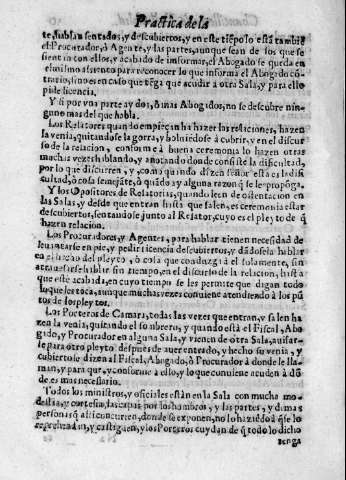 Practica de la
te, hablan sentados, y descubiertos, y en este tiẽpo lo està tambiẽ
el Procurador, ò Agente, y las partes, aunque sean de los que se
sientan con ellos, y acabado de informar, el Abogado se queda en
el mismo assiento para reconocer lo que informa el Abogado cõ-
trario, sino es en caso que tẽga que acudir a otra Sala, y para ello
pide licencia.
Y si por vna parte ay dos, ò mas Abogados, no se descubre nin-
guno mas del que habla.
Los Relatores quando empieçan ha hazer las relaciones, hazen
la venia, quitandose la gorra, y boluiẽdose à cubrir, y en el discur
so de la relacion, conforme à buena ceremonia lo hazen otras
muchas vezes hablando, y anotando donde consiste la dificultad,
por lo que discurren, y, como quando dizen señor esta es la difi
cultad, ò cosa semejãte, ò quãdo ay alguna razon q̃ se le propõga.
Y los Opositores de Relatorias, quando leen de ostentacion en
las Salas, y desde que entran hasta que salen, es ceremonia estar
descubiertos, sentandose junto al Relator, cuyo es el pleyto de q̃
hazen relacion.
Los Procuradores, y Agentes, para hablar tienen necesidad de
leuantarse en pie, y pedir licencia descubiertos, y dãdosela hablar
en el hecho del pleyto, ò cosa que conduzga à el solamente, sin
atrauesarse hablar sin tiempo, en el discurso de la relacion, hasta
que estè acabada, en cuyo tiempo se les permite que digan todo
lo que les toca, aunque muchas vezes conuiene atendiendo à los pũ
tos de los pleytos.
Los Porteros de Camara, todas las vezes que entran, y salen ha-
zen la venia, quitando el sombrero, y quando està el Fiscal, Abo
gado, y Procurador en alguna Sala, y vienen de otra Sala, auisar-
le para otro pleyto despues de auer entrado, y hecho su venia, y
cubierto le dizen al Fiscal, Abogado, ò Procurador à donde le lla-
man, y para que, y conforme à ello, y lo que conuiene acuden à dõ
de es mas necesario.
Todos los ministros, y oficiales estàn en la Sala con mucha mo-
destia, y cortesia, las capas por los hombros, y las partes, y demas
personas q̃ alli concurren, donde se exponen, no lo haziẽdo à q̃ se lo
reprehẽdan, y castiguen, y los Porteros cuydan de q̃ todo lo dicho
tenga